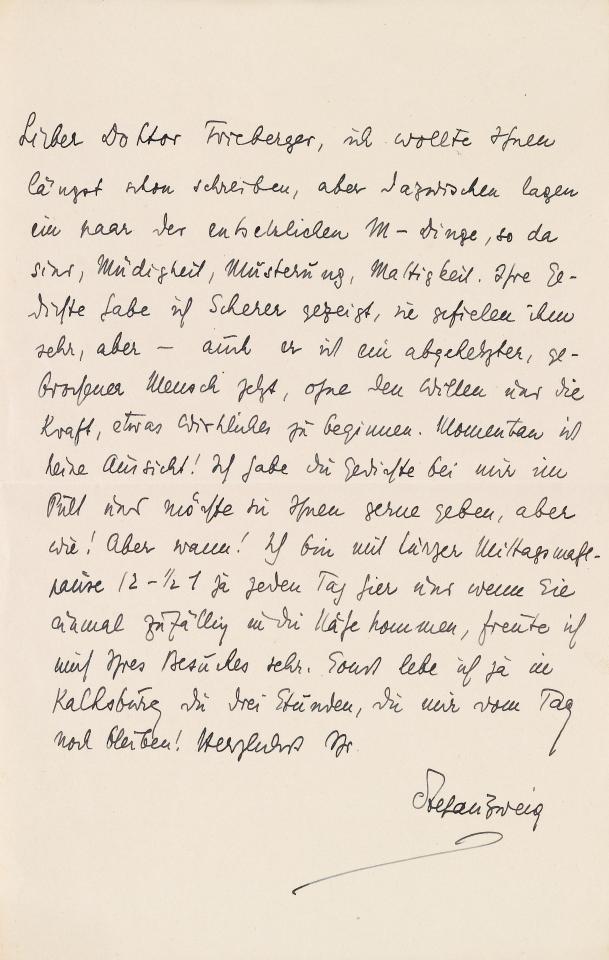 Lieber Doktor Frieberger, ich wollte Ihnen
längst schon schreiben, aber dazwischen lagen
ein paar der entsetzlichen M-Dinge, so da
sind, Müdigkeit, Musterung, Mattigkeit. Ihre Ge-
dichte habe ich Scherer gezeigt, sie gefielen ihm
sehr, aber – auch er ist ein abgehetzter, ge-
brochener Mensch jetzt, ohne den Willen und die
Kraft, etwas Wirkliches zu beginnen. Momentan ist
keine Aussicht! Ich habe die Gedichte bei mir im
Pult und möchte sie Ihnen gerne geben, aber
wie! Aber wann! Ich bin mit kurzer Mittagsmahl-
pause 12 – ½ 1 ja jeden Tag hier und wenn Sie
einmal zufällig in die Nähe kommen, freute ich
mich Ihres Besuches sehr. Sonst lebe ich ja in
Kalksburg die drei Stunden, die mir vom Tag
noch bleiben! Herzlichst Ihr
Stefan Zweig